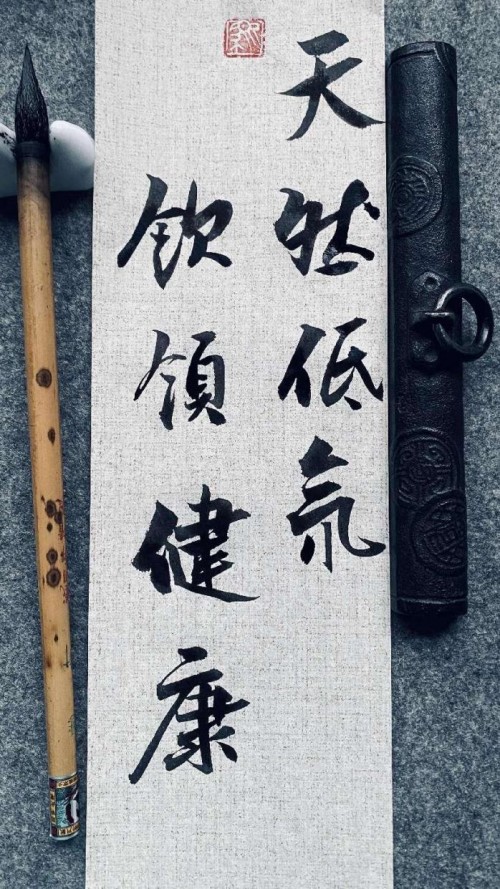 天然低氘
飲領健康